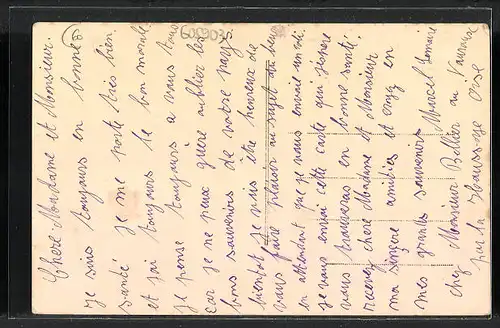 Chere Madame et Monsieur.
je suis toujours en bonne
santé je me porte très bien
et j'ai toujours le bon moral.
Je pense toujours a vous tous
car je ne peux guère oublier les
bons souvenirs de votre pays.
bientôt je vais être heureux de
vous faire plaisir au sujet du
en attendant que je vous envoie
je vous envoi cette carte qui j'espere
vous trouveras en bonne santé.
recevez chere Madame et Monsieur
ma sincère amitiés et croyez en
mes grands souvenirs Marcel Lemaire
chez Monsieur Bellier au Vauroux
par la Houssoye Oise
609031